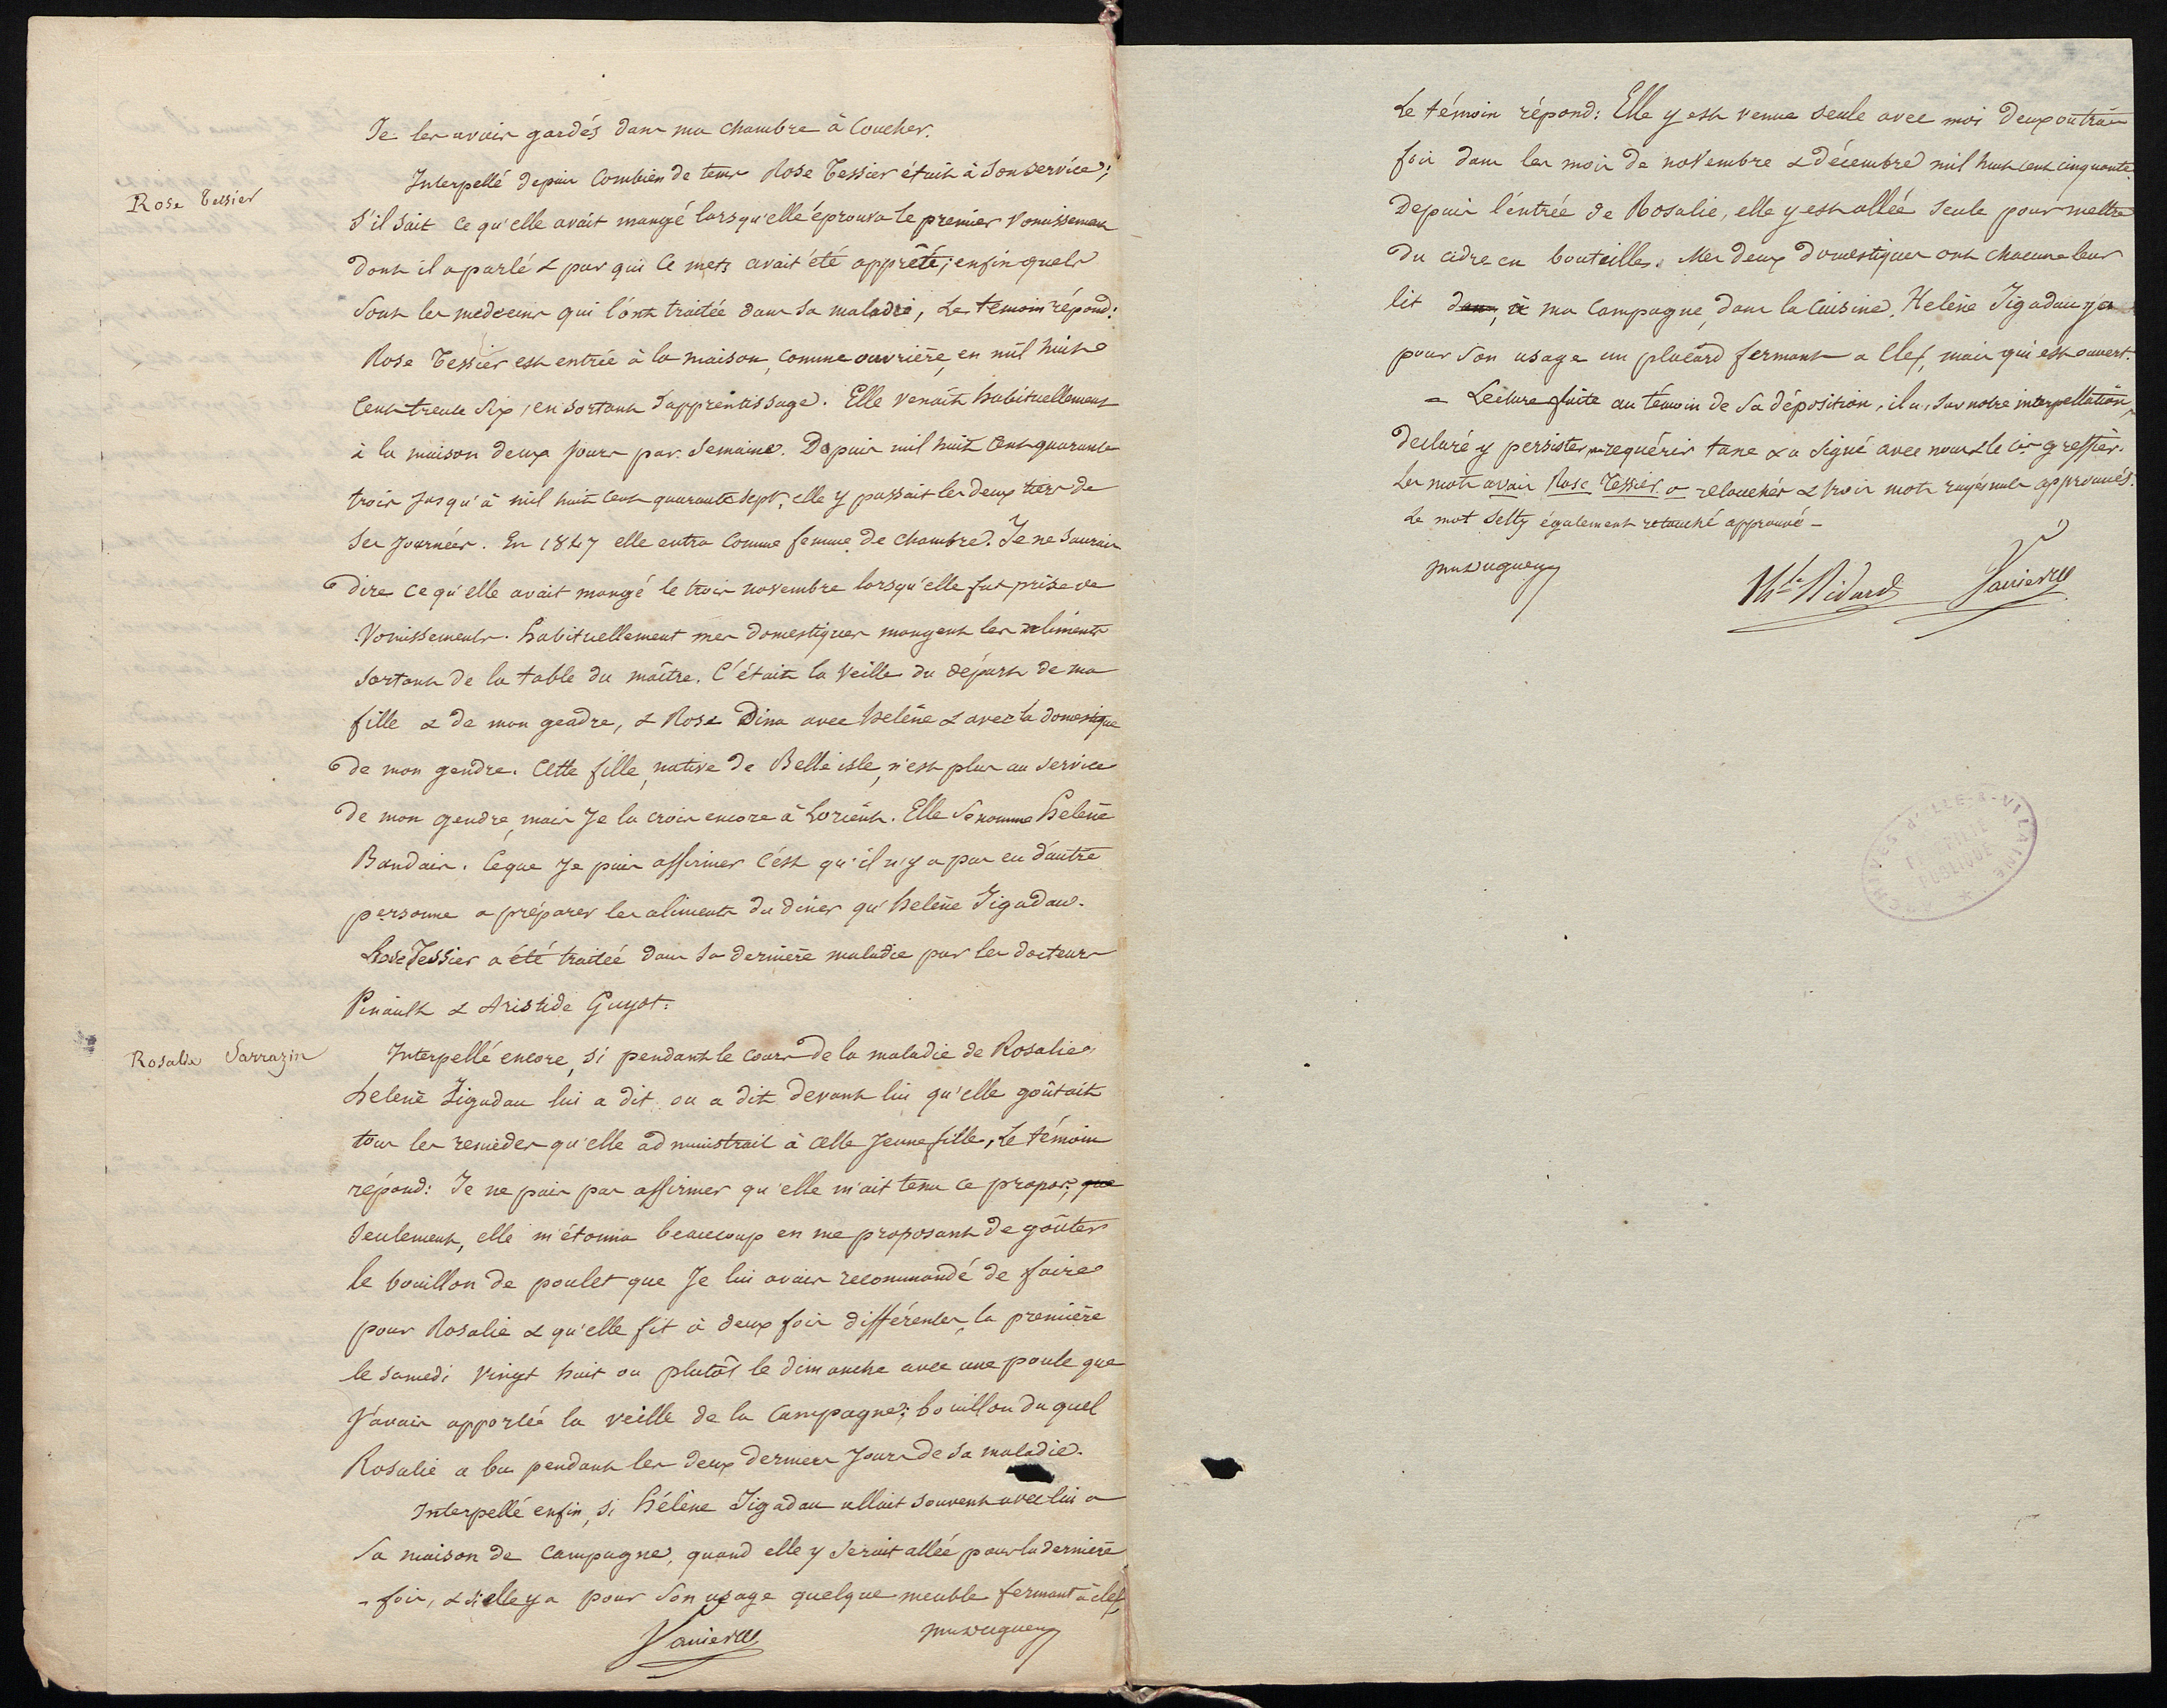 Je les avais gardés dans ma chambre à coucher.
Rose Tessier
Interpellé depuis combien de tems Rose Tessier était à son service;
s'il sait ce qu'elle avait mangé lorsqu'elle éprouva le premier vomissement
dont il a parlé & par qui ce mets avait été apprêté; enfin quels
sont les medecins qui l'ont traitée dans sa maladie, Le temoin répond:
Rose Tessier est entrée à la maison, comme ouvrière, en mil huit
cent trente six, en sortant d'apprentissage. Elle venait habituellement
à la maison deux jours par semaine. Depuis mil huit cent quarante
trois jusqu'à mil huit cent quarante sept, elle y passait les deux tiers de
ses journées. En 1847 elle entra comme femme de chambre. Je ne saurais
dire ce qu'elle avait mangé le trois novembre lorsqu'elle fut prise de
vomissements. habituellement mes domestiques mangent les aliments
sortant de la table du maître. C'était la veille du départ de ma
fille & de mon gendre, & Rose Dina avec helène & avec la domestique
de mon gendre. Cette fille, native de Belle isle, n'est plus au service
de mon gendre, mais Je la crois encore à Lorient. Elle se nomme helène
Bandais. Ce que Je puis affirmer c'est qu'il n'y a pas eu d'autre
personne a préparer les aliments du diner qu'helène Jigadau.
Rose Tessier a été traitée dans sa dernière maladie par les docteurs
Pinault & Aristide Guyot.
Rosalie Sarrazin
Interpellé encore, si pendant le cours de la maladie de Rosalie
helene Jigadau lui a dit ou a dit devant lui qu'elle goûtait
tous les remèdes qu'elle administrait à cette jeune fille, Le témoin
répond: Je ne puis pas affirmer qu'elle m'ait tenu ce propos; que
seulement, elle m'étonna beaucoup en me proposant de goûter
le bouillon de poulet que Je lui avais recommandé de faire
pour Rosalie & qu'elle fit à deux fois différentes, la première
le samedi vingt huit ou plutôt le dimanche avec une poule que
J'avais apportée la veille de la campagne; bouillon du quel
Rosalie a bu pendant les deux derniers jours de sa maladie.
Interpellé enfin, si hélène Jigadau allait souvent avec lui a
sa maison de campagne, quand elle y serait allée pour la dernière
fois, & si elle y a pour son usage quelque meuble fermant à clef,
Le témoin répond: Elle y est venue seule avec moi deux ou trois
fois dans les mois de novembre & décembre mil huit cent cinquante.
Depuis l'entrée de Rosalie, elle y est allée seule pour mettre
du cidre en bouteilles. Mes deux domestiques ont chacune leur
lit dans, à ma campagne, dans la cuisine. Helène Jigadau y a
pour son usage un placard fermant a clef, mais qui est ouvert.
- Lecture faite au témoin de sa déposition, il a, sur notre interpellation,
declaré y persister, requérir taxe & a signé avec nous & le c.is greffier.
Les mots avais Rose Tessier a retouchés & trois mots rayés nuls approuvés.
Le mot également retouché approuvé -
Th. Bidard
ARCHIVES D'ILLE-&-VILAINE